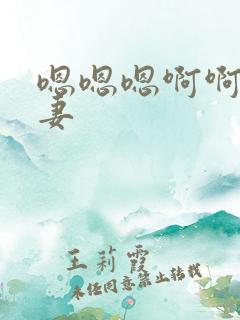 嗯嗯嗯啊啊
妻
王莉霞
未经同意禁止转载